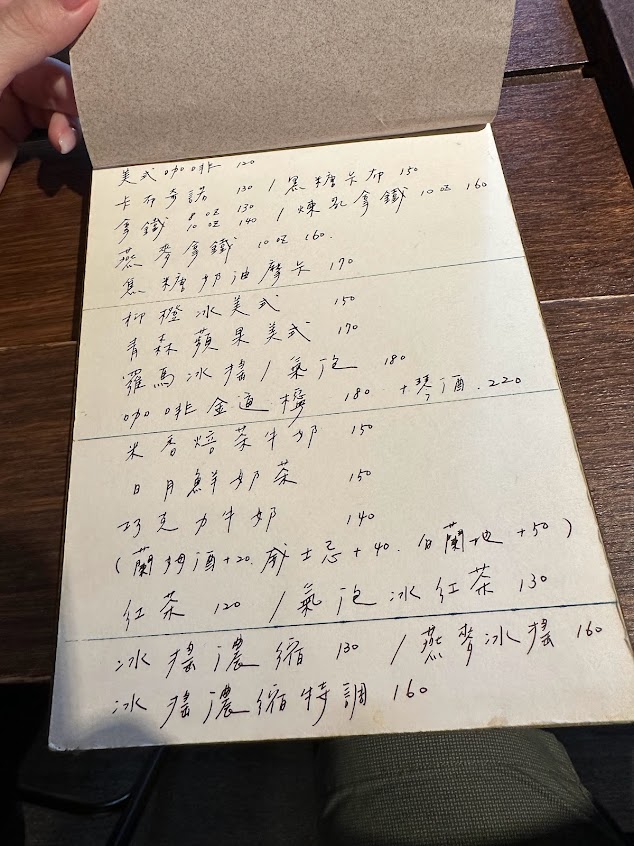 美式咖啡 120
卡布奇諾 130 / 黑糖卡布 150
拿鐵 8 oz 130 10 oz 140 / 煉乳拿鐵 10 oz 160
燕麥拿鐵 10 oz 160.
焦糖奶油摩卡 170
柳橙冰美式 150
青森蘋果美式 170
羅馬冰搖 / 氣泡 180
咖啡金通檸 180 +琴酒.220
米香焙茶牛奶 150
日月鮮奶茶 150
巧克力牛奶 140
(蘭姆酒+20.威士忌+40.白蘭地+50)
紅茶 120 / 氣泡冰紅茶 130
冰搖濃縮 130 / 燕麥冰搖 160
冰搖濃縮特調 160